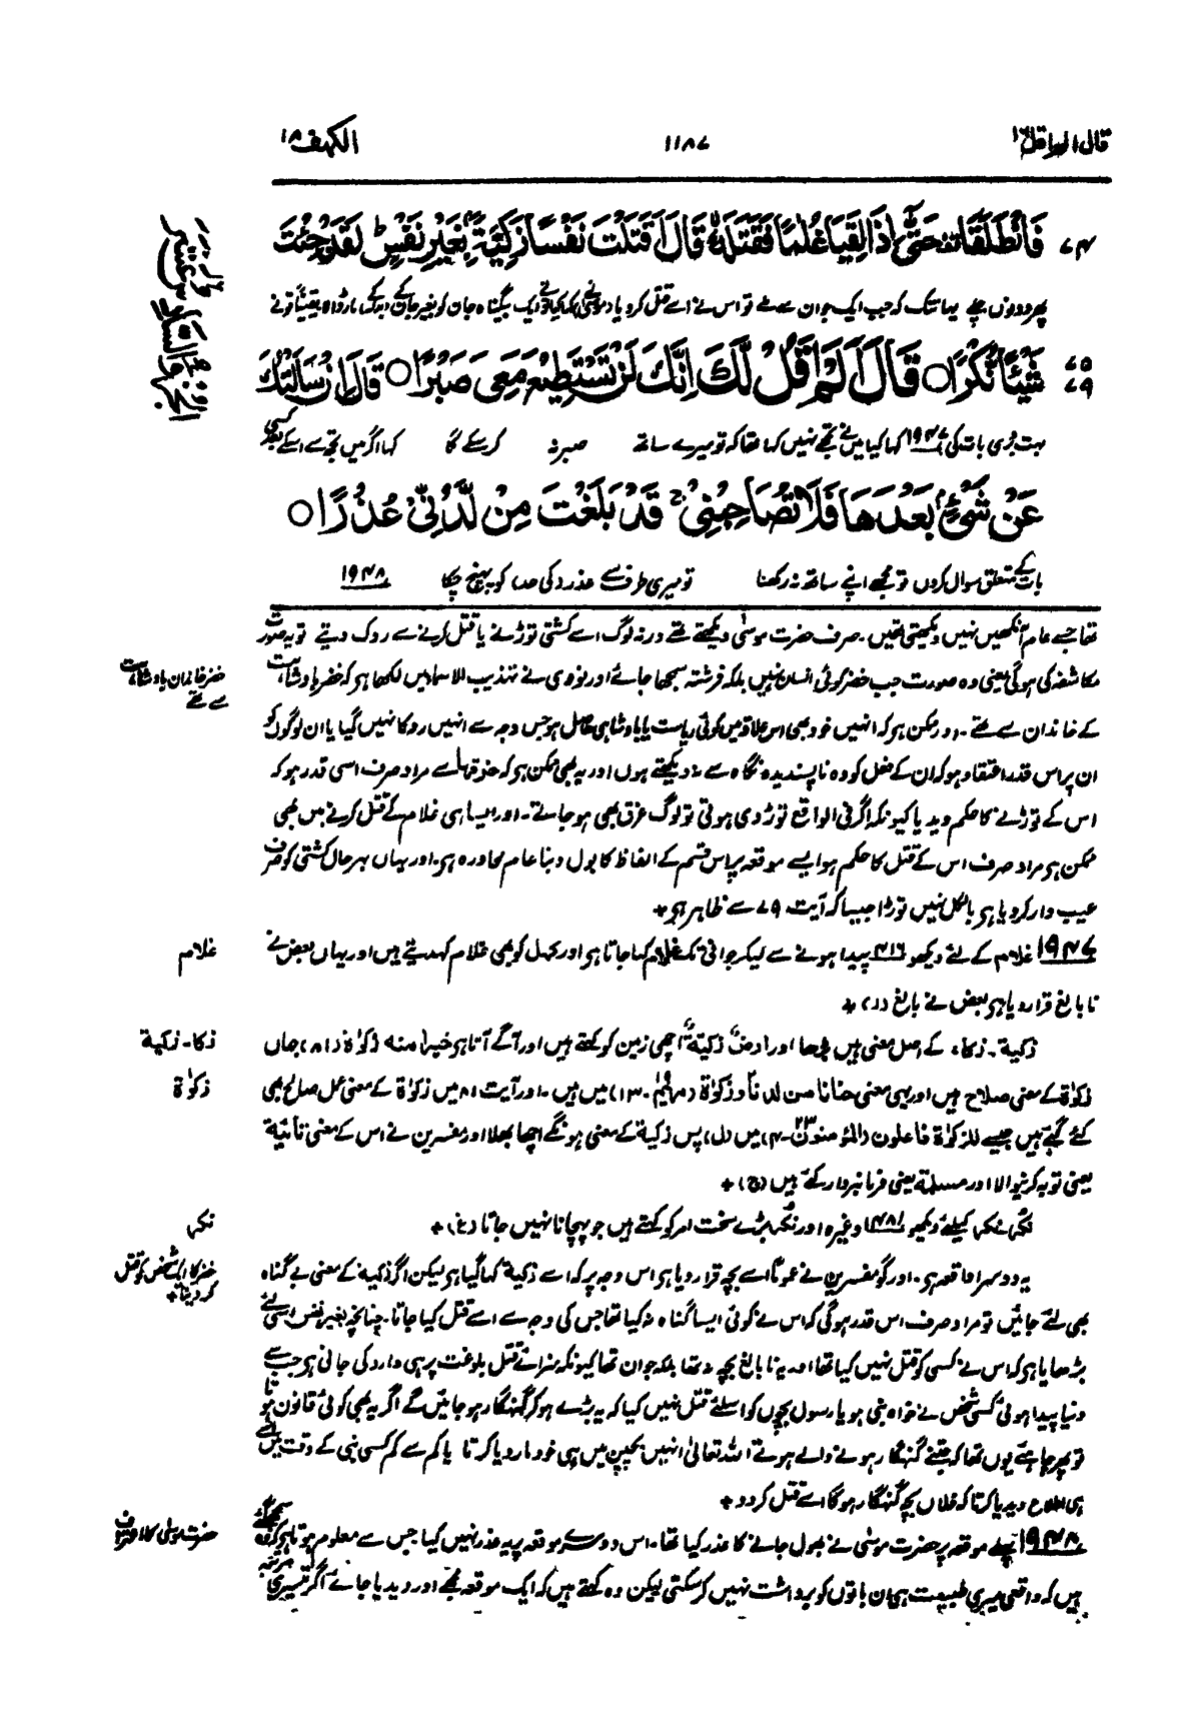 قال الم اقل ١٦
١١٨٧
الکہف ١٨
٧٤ فَانْطَلَقَا حَتّٰۤى اِذَا لَقِيَا غُلٰمًا فَقَتَلَهٗ قَالَ اَقَتَلْتَ نَفْسًا زَكِيَّةًۢ بِغَيْرِ نَفْسٍ لَقَدْ جِئْتَ
پھر دونوں چلے یہانتک کہ جب ایک جوان سے ملے تو اس نے اسے قتل کر دیا (موسیٰ نے) کہا کیا تو نے ایک بیگناہ جان کو بغیر جان کے بدلہ کے مار ڈالا یقیناً تو نے
الجزء السادس عشر
٧٥ شَيْـًٔا نُّكْرًا ○ قَالَ اَلَمْ اَقُلْ لَّكَ اِنَّكَ لَنْ تَسْتَطِيْعَ مَعِيَ صَبْرًا ○
٧٦ قَالَ اِنْ سَاَلْتُكَ
بہت بُری بات کی ١٩٤٧ کہا کیا میں نے تجھے نہیں کہا تھا کہ تو میرے ساتھ صبر نہ کرسکے گا کہا اگر میں تجھ سے اسکے بعد کسی
عَنْ شَىْءٍۭ بَعْدَهَا فَلَا تُصَاحِبْنِيْ قَدْ بَلَغْتَ مِنْ لَّدُنِّيْ عُذْرًا ○
بات کے متعلق سوال کروں تو مجھے اپنے ساتھ نہ رکھنا تو میری طرف سے عذر کی حد کو پہنچ چکا ١٩٤٨
تھا جسے عام آنکھیں نہیں دیکھتی تھیں۔ صرف حضرت موسیٰ دیکھتے تھے ورنہ لوگ اسے کشتی توڑنے یا قتل کرنے سے روک دیتے تو یہ صورت
مکاشفہ کی ہوگی یعنی وہ صورت جب خضر کوئی انسان نہیں بلکہ فرشتہ سمجھا جائے اور نووی نے تہذیب الاسماء میں لکھا ہے کہ خضر بادشاہت
خضر خاندان بادشاہت سے تھے
کے خاندان سے تھے۔ اور ممکن ہے کہ انہیں خود بھی اس علاقہ میں کوئی ریاست یا بادشاہی حاصل ہو جس وجہ سے انہیں روکا نہیں گیا یا ان لوگوں کو
ان پر اس قدر اعتقاد ہو کہ ان کے فعل کو وہ ناپسندیدہ نگاہ سے نہ دیکھتے ہوں اور یہ بھی ممکن ہے کہ خرقہا سے مراد صرف اسی قدر ہو کہ
اس کے توڑنے کا حکم دیدیا کیونکہ اگر فی الواقع توڑ دی ہوتی تو لوگ غرق بھی ہو جاتے۔ اور ایسا ہی غلام کے قتل کرنے میں بھی
ممکن ہے مراد صرف اس کے قتل کا حکم ہو ایسے موقعہ پر اس قسم کے الفاظ کا بول دینا عام محاورہ ہے۔ اور یہاں بہر حال کشتی کو صرف
عیب دار کر دیا ہے بالکل نہیں توڑا جیسا کہ آیت ٧٩ سے ظاہر ہے +
١٩٤٧ غلام کے لئے دیکھو ٤١٦ پیدا ہونے سے لیکر جوانی تک غلام کہا جاتا ہے اور کہل کو بھی غلام کہدیتے ہیں اور یہاں بعض نے
غلام
نابالغ قرار دیا ہے بعض نے بالغ (ر) +
زکیة۔ زکاء کے اصل معنی ہیں بڑھا اور ارض زکیة اچھی زمین کو کہتے ہیں اور آگے آتا ہے خیرا منه زکوٰة (٨١) جہاں
زکا۔ زکیة
زکوٰة کے معنی صلاح ہیں اور یہی معنی حنانا من لدنا وزکوٰة (مریم ١٣) میں ہیں۔ اور آیت ٨١ میں زکوٰة کے معنی عمل صالح بھی
زکوٰة
کئے گئے ہیں جیسے للزکوٰة فاعلون (المؤمنون ٢٣۔ ٤) میں (ل) پس زکیة کے معنی ہونگے اچھا بھلا اور مفسرین نے اس کے معنی تائبة
یعنی توبہ کرنیوالا اور مسلمة یعنی فرمانبردار کئے ہیں (ج) +
نُکر نکر کیلئے دیکھو ١٤٨١ وغیرہ اور نُکر بڑے سخت امر کو کہتے ہیں جو پہچانا نہیں جاتا (غ) +
نکر
یہ دوسرا واقعہ ہے۔ اور گو مفسرین نے عموماً اسے بچہ قرار دیا ہے اس وجہ پر کہ اسے زکیة کہا گیا ہے لیکن اگر زکیة کے معنی بے گناہ
خضر کا ایک شخص کو قتل کر دینا +
بھی لئے جائیں تو مراد صرف اس قدر ہوگی کہ اس نے کوئی ایسا گناہ نہ کیا تھا جس کی وجہ سے اسے قتل کیا جاتا۔ چنانچہ بغیر نفس اسی لئے
بڑھایا ہے کہ اس نے کسی کو قتل نہیں کیا تھا اور یہ نابالغ بچہ نہ تھا بلکہ جوان تھا کیونکہ سزائے قتل بلوغت پر ہی وارد کی جاتی ہے جب سے
دنیا پیدا ہوئی کسی شخص نے خواہ نبی ہو یا رسول بچوں کو اسلئے قتل نہیں کیا کہ یہ بڑے ہوکر گنہگار ہو جائیں گے اگر یہ بھی کوئی قانون ہوتا
تو پھر چاہئے یوں تھا کہ جتنے گنہگار ہونے والے ہوتے اللہ تعالیٰ انہیں بچپن میں ہی خود مار دیا کرتا یا کم سے کم کسی نبی کے وقت میں اسے
ہی اطلاع دیدیا کرتا کہ فلاں بچہ گنہگار ہوگا اسے قتل کردو +
١٩٤٨ پہلے موقعہ پر حضرت موسیٰ نے بھول جانے کا عذر کیا تھا۔ اس دوسرے موقعہ پر یہ عذر نہیں کیا۔ جس سے معلوم ہوتا ہے کہ وہ سمجھ گئے
حضرت موسیٰ کا اعتراف
ہیں کہ واقعی میری طبیعت ہی ان باتوں کو برداشت نہیں کرسکتی لیکن وہ کہتے ہیں کہ ایک موقعہ مجھے اور دیدیا جائے اگر تیسری مرتبہ